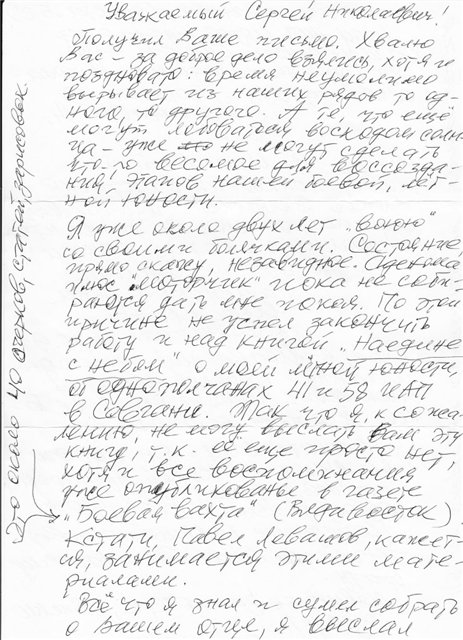 Уважаемый Сергей Николаевич!
Получил Ваше письмо. Хвалю
Вас – за доброе дело взялись, хотя и
поздновато: время неумолимо
вырывает из наших рядов то од-
ного, то другого. А те, что ещё
могут любоваться восходом солн-
ца – уже не могут сделать
что-то весомое для воссозда-
ния этапов нашей боевой, лёт-
ной юности.
Я уже около двух лет „воюю"
со своими болячками. Состояние
прямо скажу, незавидное. Одышка
плюс "моторчик" пока не соби-
раются дать мне покоя. По этой
причине не успел закончить
работу и над книгой „Наедине
с небом" о моей лётной юности,
об однополчанах 41 и 58 ИАП
в Совгани. Так что я, к сожа-
лению, не могу выслать Вам эту
книгу, т.к. её ещё просто нет,
хотя и все воспоминания
уже опубликованы в газете
„Боевая вахта" (Владивосток)
Кстати, Павел Левашов, кажет-
ся, занимается этими мате-
риалами.
Всё что я знал и сумел собрать
о Вашем отце, я выслал
Это около 40 очерков, статей, зарисовок.